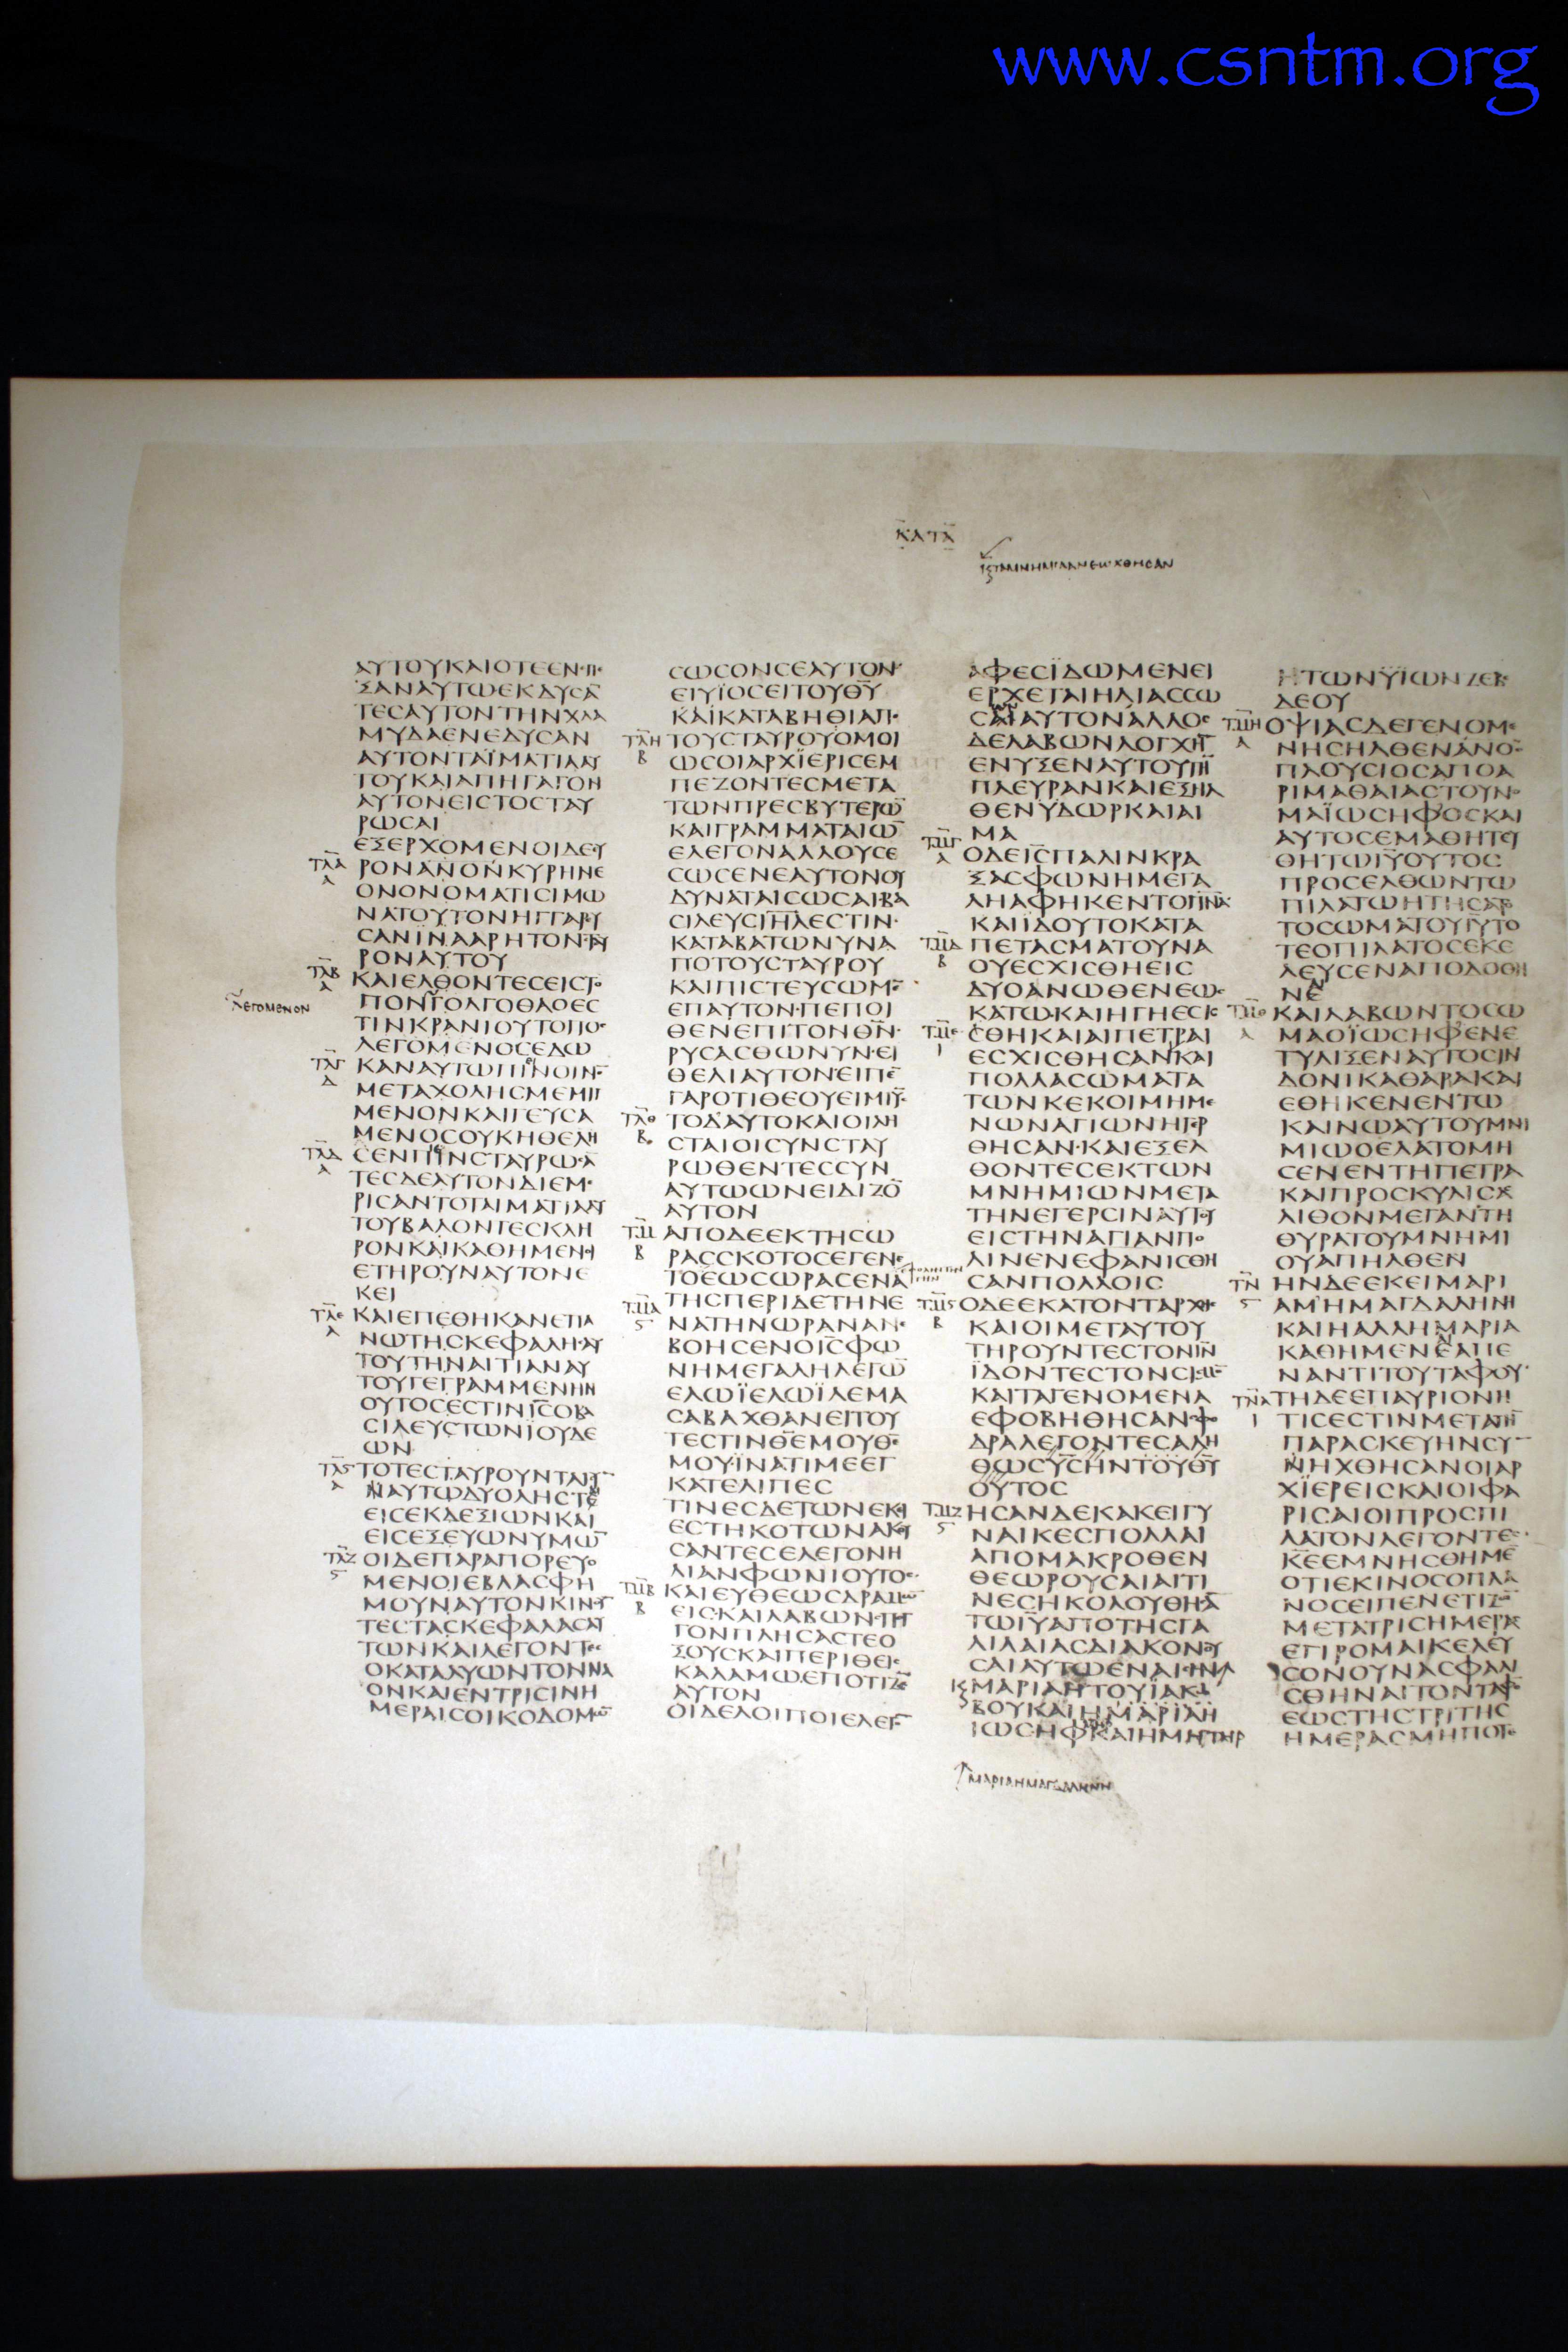 www.csntm.org
ΚΑΤΑ
ΑΥΤΟΥΚΑΙΟΤΕΕΝΕΠΕ
ΞΑΝΑΥΤΩΕΚΔΥСΑ̅
ΤΕСΑΥΤΟΝΤΗΝΧΛΑ
ΜΥΔΑΕΝΕΔΥСΑΝ
ΑΥΤΟΝΤΑΪΜΑΤΙΑΑΥ
ΤΟΥΚΑΙΑΠΗΓΑΓΟΝ
ΑΥΤΟΝΕΙСΤΟСΤΑΥ
ΡΩСΑΙ
ΕΞΕΡΧΟΜΕΝΟΙΔΕΥ
ΡΟΝΑΝΟΝΚΥΡΗΝΕ
ΟΝΟΝΟΜΑΤΙСΙΜΩ
ΝΑΤΟΥΤΟΝΗΓΓΑΡΕΥ
СΑΝΪΝΑΑΡΗΤΟΝСΤΑΥ
ΡΟΝΑΥΤΟΥ
ΚΑΙΕΛΘΟΝΤΕСΕΙСΤΟ
ΛΕΓΟΜΕΝΟΝ
ΠΟΝΓΟΛΓΟΘΑΟΕС
ΤΙΝΚΡΑΝΙΟΥΤΟΠΟС
ΛΕΓΟΜΕΝΟСΕΔΩ
ΚΑΝΑΥΤΩΠΙΝΟΙΝΟ̅
ΜΕΤΑΧΟΛΗСΜΕΜΙΓ
ΜΕΝΟΝΚΑΙΓΕΥСΑ
ΜΕΝΟСΟΥΚΗΘΕΛΗ
СΕΝΠΙΝСΤΑΥΡΩСΑ̅
ΤΕСΔΕΑΥΤΟΝΔΙΕΜΕ
ΡΙСΑΝΤΟΤΑΙΜΑΤΙΑΑΥ
ΤΟΥΒΑΛΟΝΤΕСΚΛΗ
ΡΟΝΚΑΙΚΑΘΗΜΕΝΟΙ
ΕΤΗΡΟΥΝΑΥΤΟΝΕ
ΚΕΙ
ΚΑΙΕΠΕΘΗΚΑΝΕΠΑ
ΝΩΤΗСΚΕΦΑΛΗСΑΥ
ΤΟΥΤΗΝΑΙΤΙΑΝΑΥ
ΤΟΥΓΕΓΡΑΜΜΕΝΗΝ
ΟΥΤΟСΕСΤΙΝΙ̅С̅ΟΒΑ
СΙΛΕΥСΤΩΝΙΟΥΔΕ
ΩΝ
ΤΟΤΕСΤΑΥΡΟΥΝΤΑΙСΥ
ΝΑΥΤΩΔΥΟΛΗСΤΕ
ΕΙСΕΚΔΕΞΙΩΝΚΑΙ
ΕΙСΕΞΕΥΩΝΥΜΩ̅
ΟΙΔΕΠΑΡΑΠΟΡΕΥΟ
ΜΕΝΟΙΕΒΛΑСΦΗ
ΜΟΥΝΑΥΤΟΝΚΙΝΟΥ
ΤΕСΤΑСΚΕΦΑΛΑСΑΥ
ΤΩΝΚΑΙΛΕΓΟΝΤΕС
ΟΚΑΤΑΛΥΩΝΤΟΝΝΑ
ΟΝΚΑΙΕΝΤΡΙСΙΝΗ
ΜΕΡΑΙСΟΙΚΟΔΟΜΩ̅
СΩСΟΝСΕΑΥΤΟΝ
ΕΙΥΪΟСΕΙΤΟΥΘ̅Υ̅
ΚΑΙΚΑΤΑΒΗΘΙΑΠΟ
ΤΟΥСΤΑΥΡΟΥΟΜΟΙ
ΩСΟΙΑΡΧΪΕΡΙСΕΜ
ΠΕΖΟΝΤΕСΜΕΤΑ
ΤΩΝΠΡΕСΒΥΤΕΡΩ̅
ΚΑΙΓΡΑΜΜΑΤΑΙΩ̅
ΕΛΕΓΟΝΑΛΛΟΥСΕ
СΩСΕΝΕΑΥΤΟΝΟΥ
ΔΥΝΑΤΑΙСΩСΑΙΒΑ
СΙΛΕΥСΙ̅Η̅Λ̅ΕСΤΙΝ
ΚΑΤΑΒΑΤΩΝΥΝΑ
ΠΟΤΟΥСΤΑΥΡΟΥ
ΚΑΙΠΙСΤΕΥСΩΜΕ̅
ΕΠΑΥΤΟΝΠΕΠΟΙ
ΘΕΝΕΠΙΤΟΝΘ̅Ν̅
ΡΥСΑСΘΩΝΥΝΕΙ
ΘΕΛΙΑΥΤΟΝΕΙΠΕ̅
ΓΑΡΟΤΙΘΕΟΥΕΙΜΙΥ̅С̅
ΤΟΔΑΥΤΟΚΑΙΟΙΛΗ
СΤΑΙΟΙСΥΝСΤΑΥ
ΡΩΘΕΝΤΕССΥΝ
ΑΥΤΩΩΝΕΙΔΙΖΟ̅
ΑΥΤΟΝ
ΑΠΟΔΕΕΚΤΗСΩ
ΡΑССΚΟΤΟСΕΓΕΝΕ
ΤΟΕΩСΩΡΑСΕΝΑ
ΤΗСΠΕΡΙΔΕΤΗΝΕ
ΝΑΤΗΝΩΡΑΝΑΝΕ
ΒΟΗСΕΝΟΙ̅С̅ΦΩ
ΝΗΜΕΓΑΛΗΛΕΓΩ̅
ΕΛΩΪΕΛΩΪΛΕΜΑ
СΑΒΑΧΘΑΝΕΙΤΟΥ
ΤΕСΤΙΝΘ̅Ε̅ΜΟΥΘ̅Ε̅
ΜΟΥΪΝΑΤΙΜΕΕΓ
ΚΑΤΕΛΙΠΕС
ΤΙΝΕСΔΕΤΩΝΕΚΙ
ΕСΤΗΚΟΤΩΝΑΚΟΥ
СΑΝΤΕСΕΛΕΓΟΝΗ
ΛΙΑΝΦΩΝΙΟΥΤΟС
ΚΑΙΕΥΘΕΩСΔΡΑΜΩ̅
ΕΙСΚΑΙΛΑΒΩΝСΠΟΓ
ΓΟΝΠΛΗСΑСΤΕΟ
ΞΟΥСΚΑΙΠΕΡΙΘΕΙС
ΚΑΛΑΜΩΕΠΟΤΙΖΕ̅
ΑΥΤΟΝ
ΟΙΔΕΛΟΙΠΟΙΕΛΕΓΟ̅
ΑΦΕСΪΔΩΜΕΝΕΙ
ΕΡΧΕΤΑΙΗΛΙΑССΩ
ΑΥΤΟΝΑΛΛΟС
ΔΕΛΑΒΩΝΛΟΓΧΗ̅
ΕΝΥΞΕΝΑΥΤΟΥΤΗ̅
ΠΛΕΥΡΑΝΚΑΙΕΞΗΛ
ΘΕΝΥΔΩΡΚΑΙΑΙ
ΜΑ
ΟΔΕΙ̅С̅ΠΑΛΙΝΚΡΑ
ΞΑСΦΩΝΗΜΕΓΑ
ΛΗΑΦΗΚΕΝΤΟΠ̅Ν̅Α̅
ΚΑΙΪΔΟΥΤΟΚΑΤΑ
ΠΕΤΑСΜΑΤΟΥΝΑ
ΟΥΕСΧΙСΘΗΕΙС
ΔΥΟΑΝΩΘΕΝΕΩС
ΚΑΤΩΚΑΙΗΓΗΕСΙ
СΘΗΚΑΙΑΙΠΕΤΡΑΙ
ΕСΧΙСΘΗСΑΝΚΑΙ
ΠΟΛΛΑСΩΜΑΤΑ
ΤΩΝΚΕΚΟΙΜΗΜΕ
ΝΩΝΑΓΙΩΝΗΓΕΡ
ΘΗСΑΝΚΑΙΕΞΕΛ
ΘΟΝΤΕСΕΚΤΩΝ
ΜΝΗΜΙΩΝΜΕΤΑ
ΤΗΝΕΓΕΡСΙΝΑΥΤΟΥ
ΕΙСΤΗΝΑΓΙΑΝΠΟ
ΛΙΝΕΝΕΦΑΝΙСΘΗ
СΑΝΠΟΛΛΟΙС
ΟΔΕΕΚΑΤΟΝΤΑΡΧΗС
ΚΑΙΟΙΜΕΤΑΥΤΟΥ
ΤΗΡΟΥΝΤΕСΤΟΝΙ̅Ν̅
ΪΔΟΝΤΕСΤΟΝСΙСΜΟ̅
ΚΑΙΤΑΓΕΝΟΜΕΝΑ
ΕΦΟΒΗΘΗСΑΝСΦΟ
ΔΡΑΛΕΓΟΝΤΕСΑΛΗ
ΘΩСΥ̅С̅ΗΝΤΟΥΘ̅Υ̅
ΟΥΤΟС
ΗСΑΝΔΕΚΑΚΕΙΓΥ
ΝΑΙΚΕСΠΟΛΛΑΙ
ΑΠΟΜΑΚΡΟΘΕΝ
ΘΕΩΡΟΥСΑΙΑΙΤΙ
ΝΕСΗΚΟΛΟΥΘΗСΑ̅
ΤΩΙ̅Υ̅ΑΠΟΤΗСΓΑ
ΛΙΛΑΙΑСΔΙΑΚΟΝΟΥ
СΑΙΑΥΤΩΕΝΑΙСΗΝ
ΜΑΡΙΑΗΤΟΥΪΑΚΩ
ΒΟΥΚΑΙΗΜΑΡΙΑΗ
ΙΩСΗΦΚΑΙΗΜΗΤΗΡ
ΜΑΡΙΑΗΜΑΓΔΑΛΗΝΗ
ΤΩΝΫΪΩΝΖΕΒΕ
ΔΕΟΥ
ΟΨΙΑСΔΕΓΕΝΟΜΕ
ΝΗСΗΛΘΕΝΑΝΟС
ΠΛΟΥСΙΟСΑΠΟΑ
ΡΙΜΑΘΑΙΑСΤΟΥΝΟ
ΜΑΪΩСΗΦΟСΚΑΙ
ΑΥΤΟСΕΜΑΘΗΤΕΥ
ΘΗΤΩΙ̅Υ̅ΟΥΤΟС
ΠΡΟСΕΛΘΩΝΤΩ
ΠΙΛΑΤΩΗΤΗСΑΤΟ
ΤΟСΩΜΑΤΟΥΙ̅Υ̅ΤΟ
ΤΕΟΠΙΛΑΤΟСΕΚΕ
ΛΕΥСΕΝΑΠΟΔΟΘΗ
ΝΕ
ΚΑΙΛΑΒΩΝΤΟСΩ
ΜΑΟΪΩСΗΦΕΝΕ
ΤΥΛΙΞΕΝΑΥΤΟСΙΝ
ΔΟΝΙΚΑΘΑΡΑΚΑΙ
ΕΘΗΚΕΝΕΝΤΩ
ΚΑΙΝΩΑΥΤΟΥΜΝΗ
ΜΙΩΟΕΛΑΤΟΜΗ
СΕΝΕΝΤΗΠΕΤΡΑ
ΚΑΙΠΡΟСΚΥΛΙСΑС
ΛΙΘΟΝΜΕΓΑΝΤΗ
ΘΥΡΑΤΟΥΜΝΗΜΙ
ΟΥΑΠΗΛΘΕΝ
ΗΝΔΕΕΚΕΙΜΑΡΙ
ΑΜΗΜΑΓΔΑΛΗΝΗ
ΚΑΙΗΑΛΛΗΜΑΡΙΑ
ΚΑΘΗΜΕΝΕΑΠΕ
ΝΑΝΤΙΤΟΥΤΑΦΟΥ
ΤΗΔΕΕΠΑΥΡΙΟΝΗ
ΤΙСΕСΤΙΝΜΕΤΑΤΗ̅
ΠΑΡΑСΚΕΥΗΝСΥ
ΝΗΧΘΗСΑΝΟΙΑΡ
ΧΪΕΡΕΙСΚΑΙΟΙΦΑ
ΡΙСΑΙΟΙΠΡΟСΠΙ
ΛΑΤΟΝΛΕΓΟΝΤΕС
Κ̅Ε̅ΕΜΝΗСΘΗΜΕ̅
ΟΤΙΕΚΙΝΟСΟΠΛΑ
ΝΟСΕΙΠΕΝΕΤΙΖΩ̅
ΜΕΤΑΤΡΙСΗΜΕΡΑС
ΕΓΙΡΟΜΑΙΚΕΛΕΥ
СΟΝΟΥΝΑСΦΑΛΙ
СΘΗΝΑΙΤΟΝΤΑΦΟ̅
ΕΩСΤΗСΤΡΙΤΗС
ΗΜΕΡΑСΜΗΠΟΤΕ